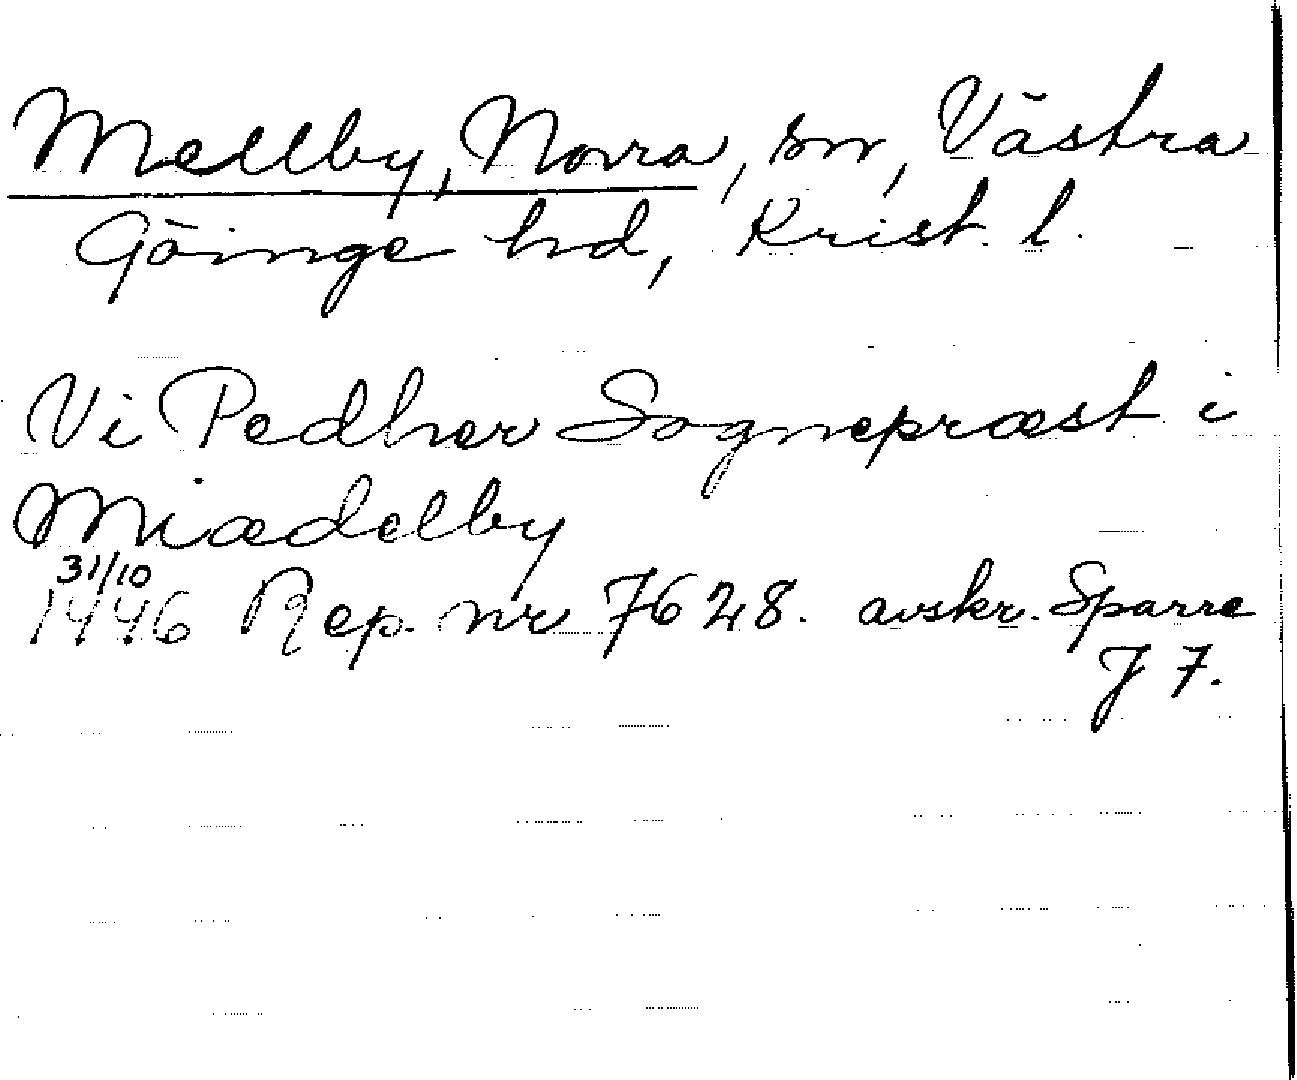 Mellby, Norra, sn, Västra
Göinge hd, Krist. l.
Vi Pedher Sognepræst i
Miædelby
31/10
1446 Rep. nr 7628. avskr. Sparre
J 7.